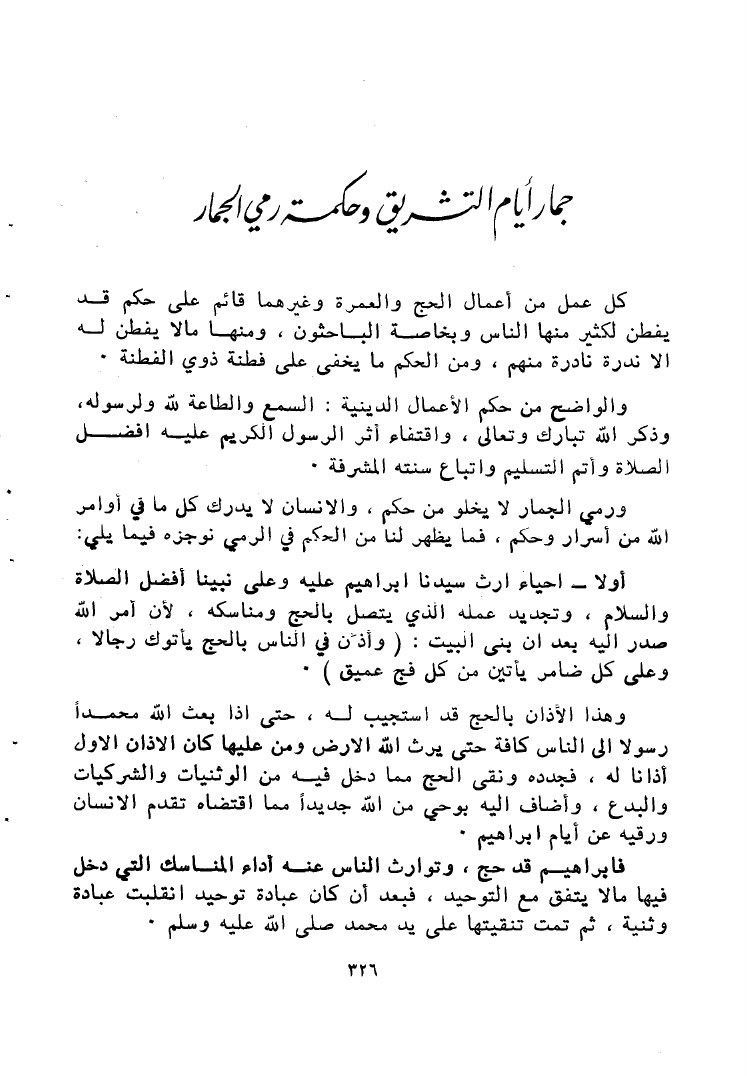 جمار أيام التشريق وحكمة رمي الجمار
كل عمل من أعمال الحج والعمرة وغيرهما قائم على حكم قد
يفطن لكثير منها الناس وبخاصة الباحثون ، ومنها مالا يفطن له
الا ندرة نادرة منهم ، ومن الحكم ما يخفى على فطنة ذوي الفطنة ٠
والواضح من حكم الأعمال الدينية : السمع والطاعة لله ولرسوله،
وذكر الله تبارك وتعالى ، واقتفاء أثر الرسول الكريم عليه افضل
الصلاة وأتم التسليم واتباع سنته المشرفة ٠
ورمي الجمار لا يخلو من حكم ، والانسان لا يدرك كل ما في أوامر
الله من أسرار وحكم ، فما يظهر لنا من الحكم في الرمي نوجزه فيما يلي:
أولا – احياء ارث سيدنا ابراهيم عليه وعلى نبينا أفضل الصلاة
والسلام ، وتجديد عمله الذي يتصل بالحج ومناسكه ، لأن أمر الله
صدر اليه بعد ان بنى البيت : ( وأذن في الناس بالحج يأتوك رجالا ،
وعلى كل ضامر يأتين من كل فج عميق ) ٠
وهذا الأذان بالحج قد استجيب له ، حتى اذا بعث الله محمداً
رسولا الى الناس كافة حتى يرث الله الارض ومن عليها كان الاذان الاول
أذانا له ، فجدده ونقى الحج مما دخل فيه من الوثنيات والشركيات
والبدع ، وأضاف اليه بوحي من الله جديداً مما اقتضاه تقدم الانسان
ورقيه عن أيام ابراهيم ٠
فابراهيم قد حج ، وتوارث الناس عنه أداء المناسك التي دخل
فيها مالا يتفق مع التوحيد ، فبعد أن كان عبادة توحيد انقلبت عبادة
وثنية ، ثم تمت تنقيتها على يد محمد صلى الله عليه وسلم ٠
٣٢٦